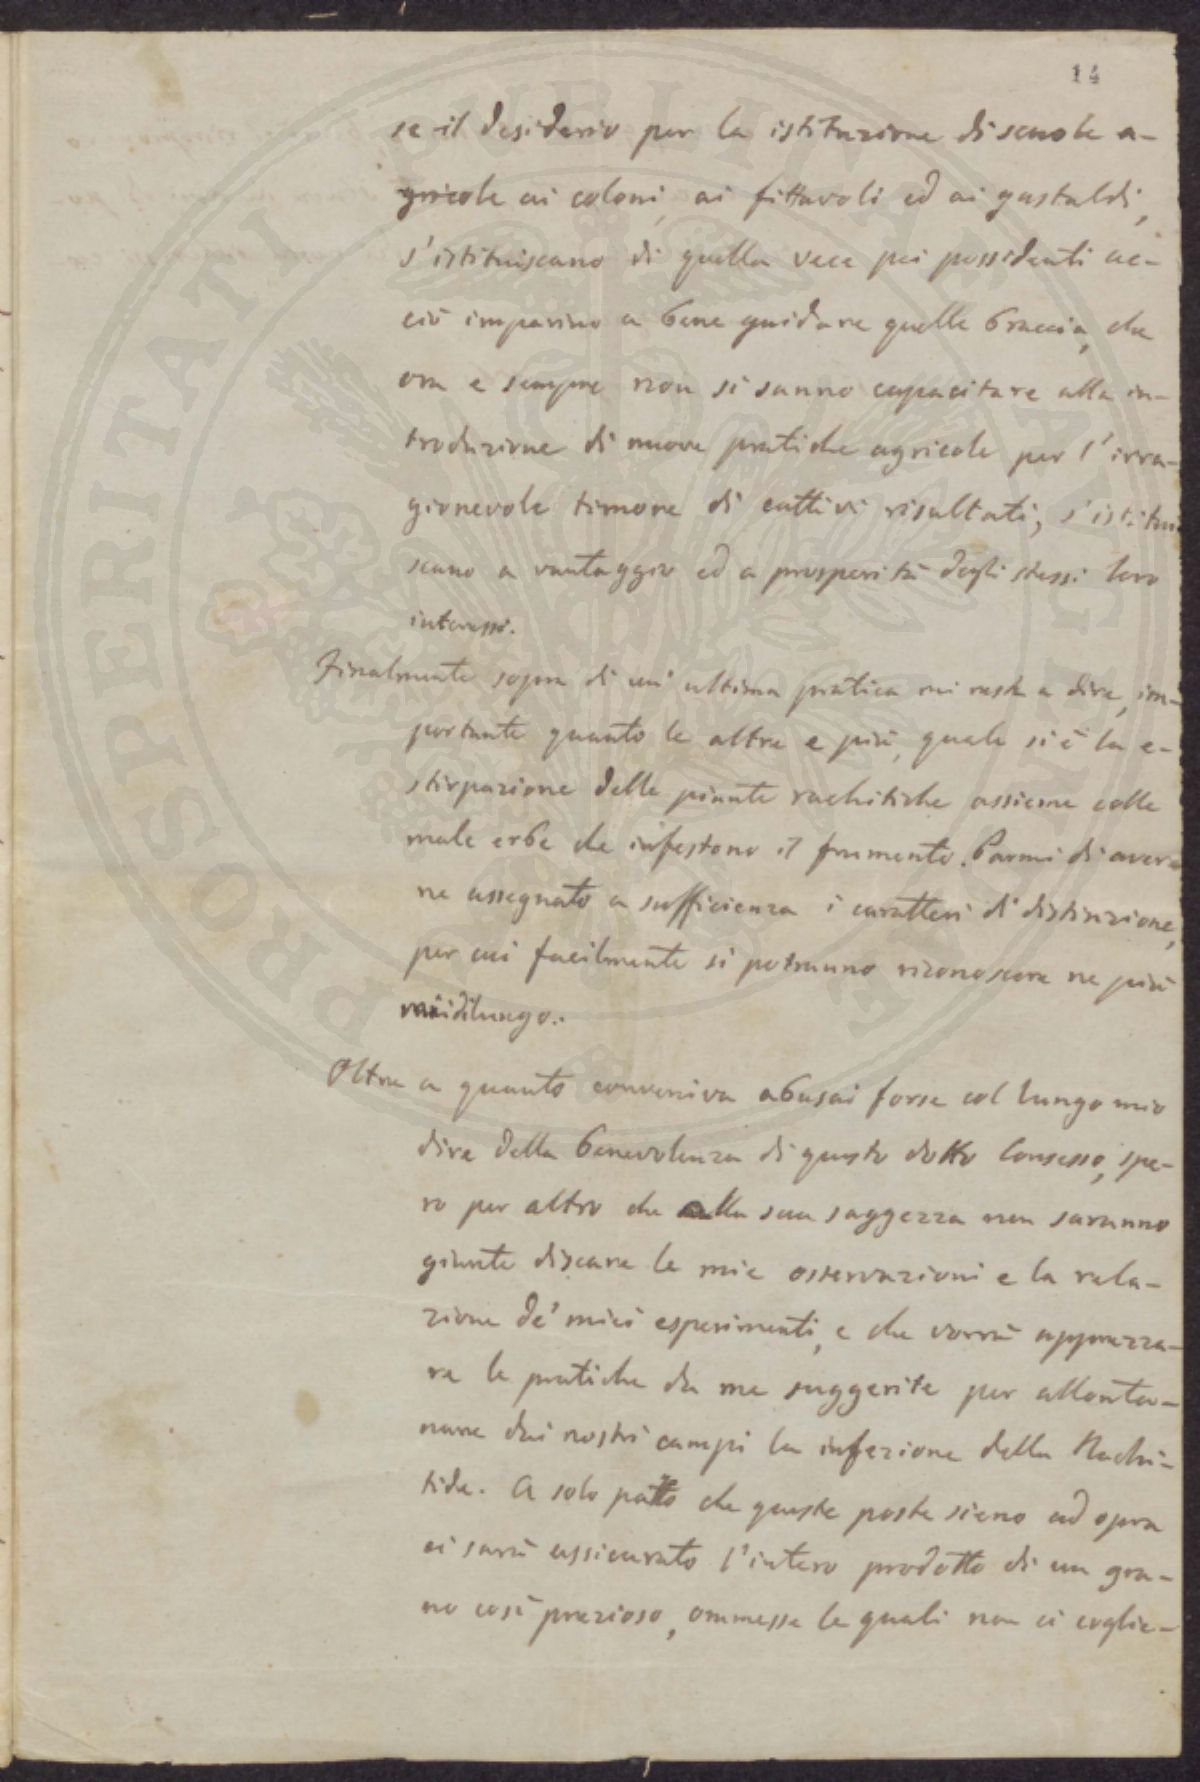 14
se il desiderio per la istituzione di scuole a-
gricole ai coloni, ai fittavoli ed ai gastaldi,
s'istituiscano di quella vece pei possidenti ac-
ciò imparino a bene guidare quelle braccia, che
ora e sempre non si sanno capacitare alla in-
troduzione di nuove pratiche agricole per l'irra-
gionevole timore di cattivi risultati, s'istitui
scano a vantaggio ed a prosperità degli stessi loro
interessi.
Finalmente sopra di un' ultima pratica mi resta a dire, im-
portante quanto le altre e più, quale si è la e-
stirpazione delle piante rachitiche assieme colle
male erbe che infestano il frumento. Parmi di aver
ne assegnato a sufficienza i caratteri di distinzione,
per cui facilmente si potranno riconoscere ne più
mi dilungo.
Oltre a quanto conveniva abusai forse col lungo mio
dire della benevolenza di questo dotto Consesso, spe-
ro per altro che alla sua saggezza non saranno
giunte discare le mie osservazioni e la rela-
zione de' miei esperimenti, e che vorrà apprezza-
re le pratiche da me suggerite per allonta-
nare dai nostri campi la infezione della Rachi-
tide. A solo patto che queste poste sieno ad opra
ci sarà assicurato l'intero prodotto di un gra-
no così prezioso, ommesse le quali non ci coglie-
PROSPERITATI PVBLICAE AVGENDAE